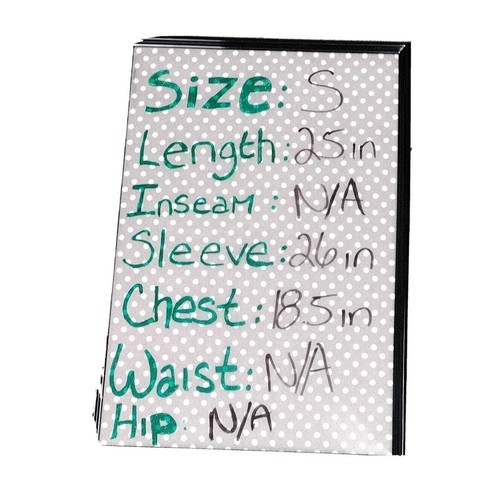 Size: S
Length: 25in
Inseam: N/A
Sleeve: 26in
Chest: 18.5in
Waist: N/A
Hip: N/A